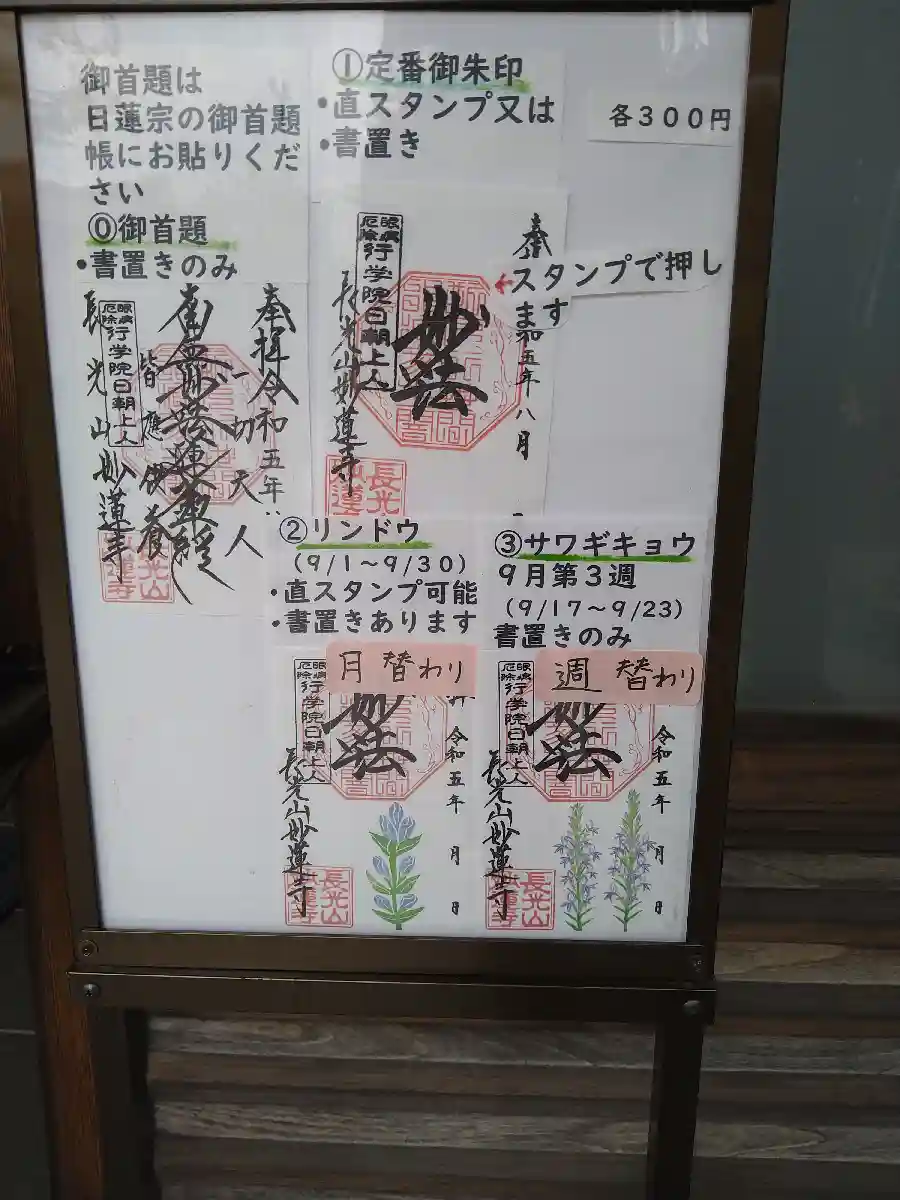 御首題は
日蓮宗の御首題
帳にお貼りくだ
さい
⓪御首題
・書置きのみ
奉拝 令和五年
一切天人
南無妙法蓮華経
皆應供養
眼病
厄除
行学院日朝上人
長光山妙蓮寺
①定番御朱印
・直スタンプ又は
・書置き
各300円
スタンプで押し
ます
奉
和五年八月
妙法
眼病
厄除
行学院日朝上人
長光山妙蓮寺
②リンドウ
(9/1~9/30)
・直スタンプ可能
・書置きあります
月替わり
令和五年 月 日
妙法
眼病
厄除
行学院日朝上人
長光山妙蓮寺
長光山
妙蓮寺
③サワギキョウ
9月第3週
(9/17~9/23)
書置きのみ
週替わり
令和五年 月 日
妙法
眼病
厄除
行学院日朝上人
長光山妙蓮寺
長光山
妙蓮寺